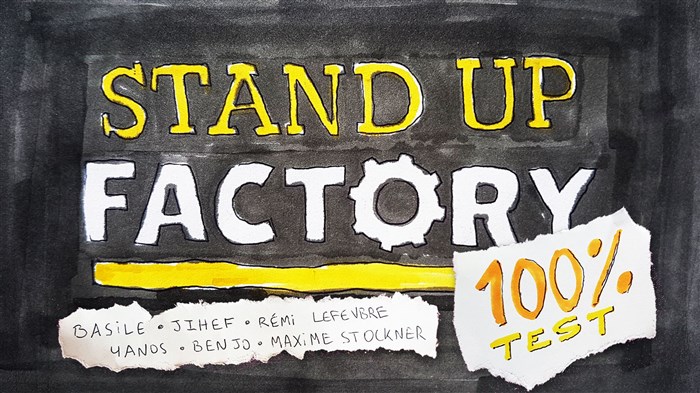 STAND UP
FACTORY
100%
TEST
BASILE • JIHEF • RÉMI LEFEVBRE
YANOS • BENJO • MAXIME STOCKNER